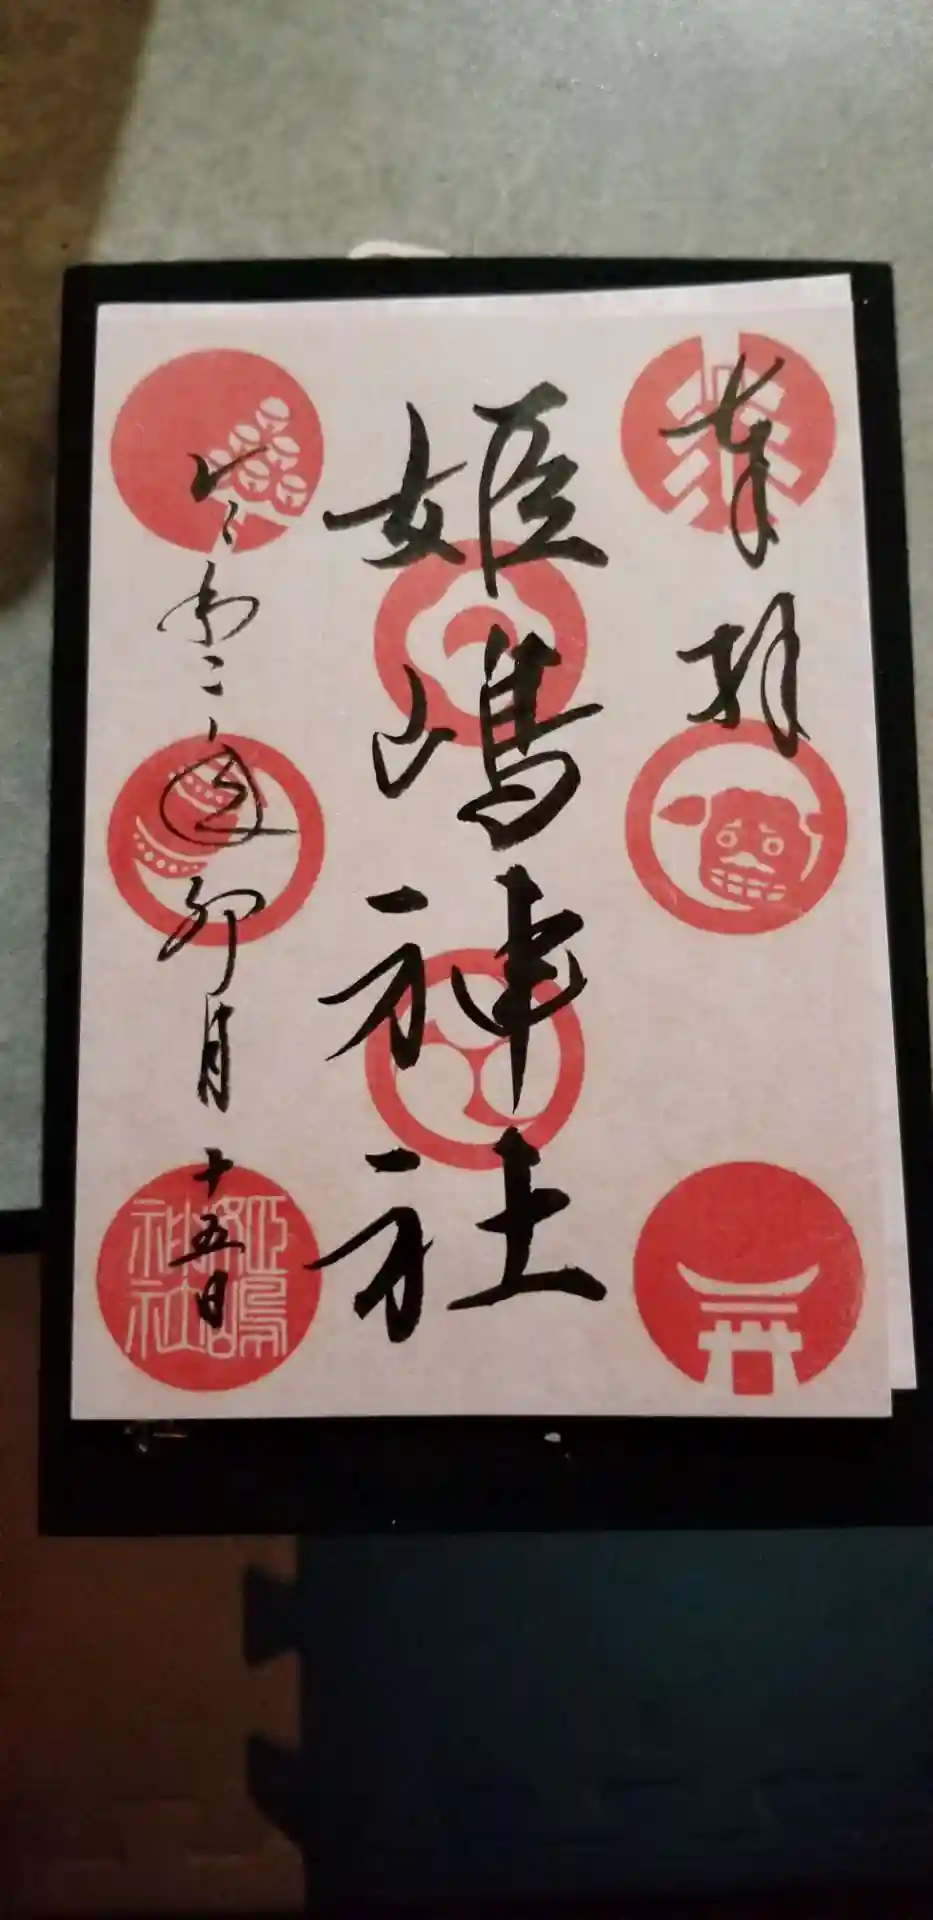 奉拝
姫嶋神社
令和二年卯月十五日
姫嶋
神社